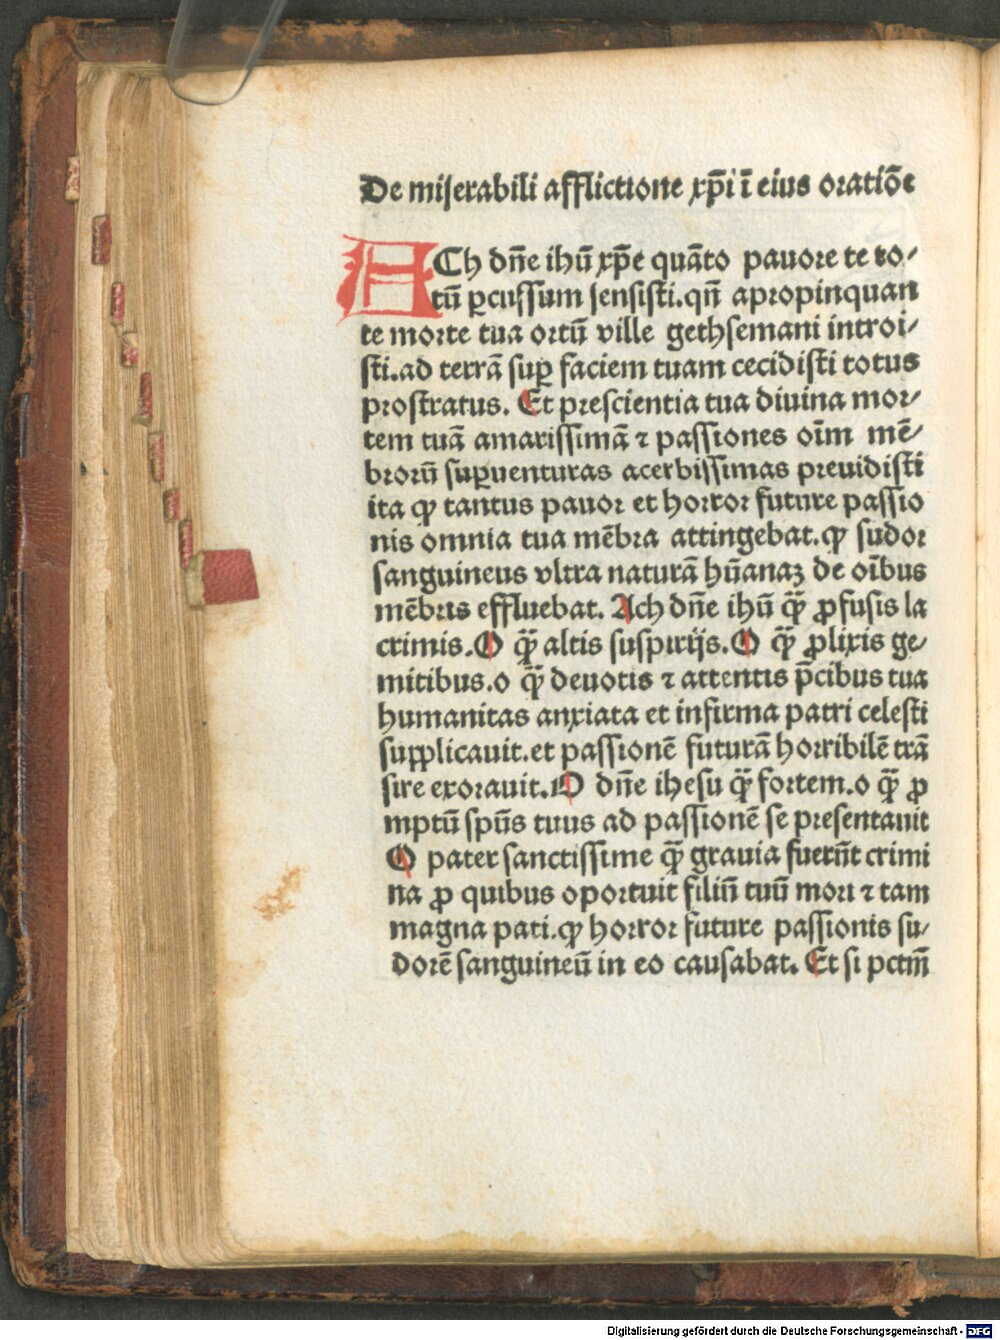 De miserabili afflictione xp̄i ī eius oratiōe
ACh dn̄e ihū xp̄e quāto pavore te to⸗
tū ꝑcussum sensisti.qn̄ apropinquan
te morte tua ortū ville gethsemani introi⸗
sti.ad terrā suꝑ faciem tuam cecidisti totus
prostratus. Et prescientia tua diuina mor⸗
tem tuā amarissimā ⁊ passiones oīm mē⸗
brorū suꝑuenturas acerbissimas preuidisti
ita ꝙ tantus pauor et horror future passio
nis omnia tua mēbra attingebat.ꝙ sudor
sanguineus vltra naturā hūanaꝫ de oībus
mēbris effluebat. Ach dn̄e ihū ꝙ̄ ꝓfusis la
crimis.O ꝙ̄ altis suspirijs.O ꝙ̄ ꝓlixis ge⸗
mitibus.o ꝙ̄ deuotis ⁊ attentis p̄cibus tua
humanitas anxiata et infirma patri celesti
supplicauit.et passionē futurā horribilē trā
sire exorauit.O dn̄e ihesu ꝙ̄ fortem.o ꝙ̄ ꝓ
mptū spūs tuus ad passionē se presentauit
O pater sanctissime ꝙ̄ grauia fuerūt crimi
na ꝓ quibus oportuit filiū tuū mori ⁊ tam
magna pati.ꝙ horror future passionis su⸗
dorē sanguineū in eo causabat. Et si pctm̄
Digitalisierung gefördert durch die Deutsche Forschungsgemeinschaft - DFG